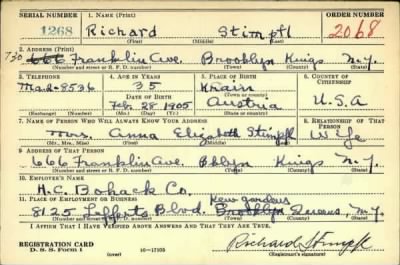 SERIAL NUMBER 1. NAME (Print) ORDER NUMBER
1268 Richard Stimpfl 2068
(First) (Middle) (Last)
2. ADDRESS (Print)
730 666 Franklin Ave. Brooklyn Kings N.Y.
(Number and street or R. F. D. number) (Town) (County) (State)
3. TELEPHONE 4. AGE IN YEARS 5. PLACE OF BIRTH 6. COUNTRY OF CITIZENSHIP
Ma.2-8536 35 Krain
DATE OF BIRTH (Town or county)
Feb. 28 1905 Austria U.S.A
(Exchange) (Number) (Mo.) (Day) (Yr.) (State or country)
7. NAME OF PERSON WHO WILL ALWAYS KNOW YOUR ADDRESS 8. RELATIONSHIP OF THAT PERSON
Mrs. Anna Elizabeth Stimpfl Wife
(Mr., Mrs., Miss) (First) (Middle) (Last)
9. ADDRESS OF THAT PERSON
666 Franklin Ave. Bklyn Kings N.Y.
(Number and street or R. F. D. number) (Town) (County) (State)
10. EMPLOYER'S NAME
H.C. Bohack Co.
11. PLACE OF EMPLOYMENT OR BUSINESS Kew Gardens
8125 Lefferts Blvd. Brooklyn Queens, N.Y.
(Number and street or R. F. D. number) (Town) (County) (State)
I AFFIRM THAT I HAVE VERIFIED ABOVE ANSWERS AND THAT THEY ARE TRUE.
REGISTRATION CARD
D. S. S. Form 1 (over) 16—17105 Richard Stimpfl
(Registrant's signature)